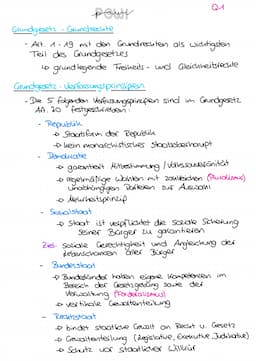 POWI
Q1
Grundgesetz - Grundrechte
- Art. 1 - 19 mit den Grundrechten als wichtigsten
Teil des Grundgesetzes
↳ grundlegende Freiheits- und Gleichheitsrechte
Grundgesetz - Verfassungsprinzipien
- Die 5 folgenden Verfassungsprinzipien sind im Grundgesetz
Art. 20 festgeschrieben:
- Republik
↳ Staatsform der Republik
↳ kein monarchistisches Staatsoberhaupt
- Demokratie
↳ garantiert Mitbestimmung / Volkssouveränität
↳ regelmäßige Wahlen mit zahlreichen (Pluralismus)
unabhängigen Parteien zur Auswahl
↳ Mehrheitsprinzip
- Sozialstaat
↳ Staat ist verpflichtet die soziale Sicherung
seiner Bürger zu garantieren
Ziel: soziale Gerechtigkeit und Angleichung der
Lebenschancen aller Bürger
- Bundesstaat
↳ Bundesländer haben eigene Kompetenzen im
Bereich der Gesetzgebung sowie der
Verwaltung (Föderalismus)
↳ vertikale Gewaltenteilung
- Rechtsstaat
↳ bindet staatliche Gewalt an Recht u. Gesetz
↳ Gewaltenteilung (Legislative, Exekutive, Judikative)
↳ Schutz vor staatlicher Willkür